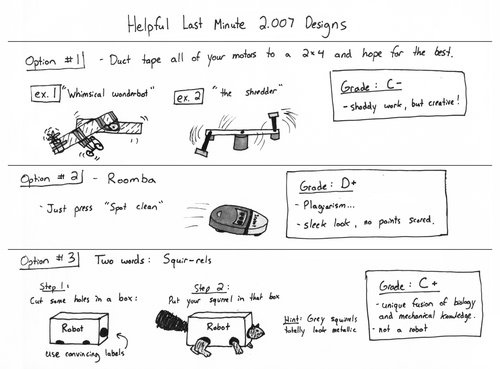 Helpful Last Minute 2.007 Designs
Option #1 - Duct tape all of your motors to a 2x4 and hope for the best.
ex. 1 "Whimsical wonderbot"
ex. 2 "the shredder"
Grade: C-
- shoddy work, but creative!
Option #2 - Roomba
- Just press "Spot clean"
Grade: D+
- Plagiarism...
- sleek look, no points scored.
Option #3 Two words: Squir-rels
Step 1:
Cut some holes in a box:
Robot
use convincing labels
Step 2:
Put your squirrel in that box
Robot
Hint: Grey squirrels
totally look metallic
Grade: C+
- unique fusion of biology
and mechanical knowledge.
- not a robot